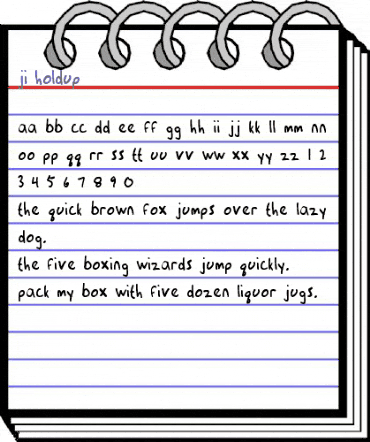 ji holdup
aa bb cc dd ee ff gg hh ii jj kk ll mm nn
oo pp qq rr ss tt uu vv ww xx yy zz 1 2
3 4 5 6 7 8 9 0
the quick brown fox jumps over the lazy
dog.
the five boxing wizards jump quickly.
pack my box with five dozen liquor jugs.